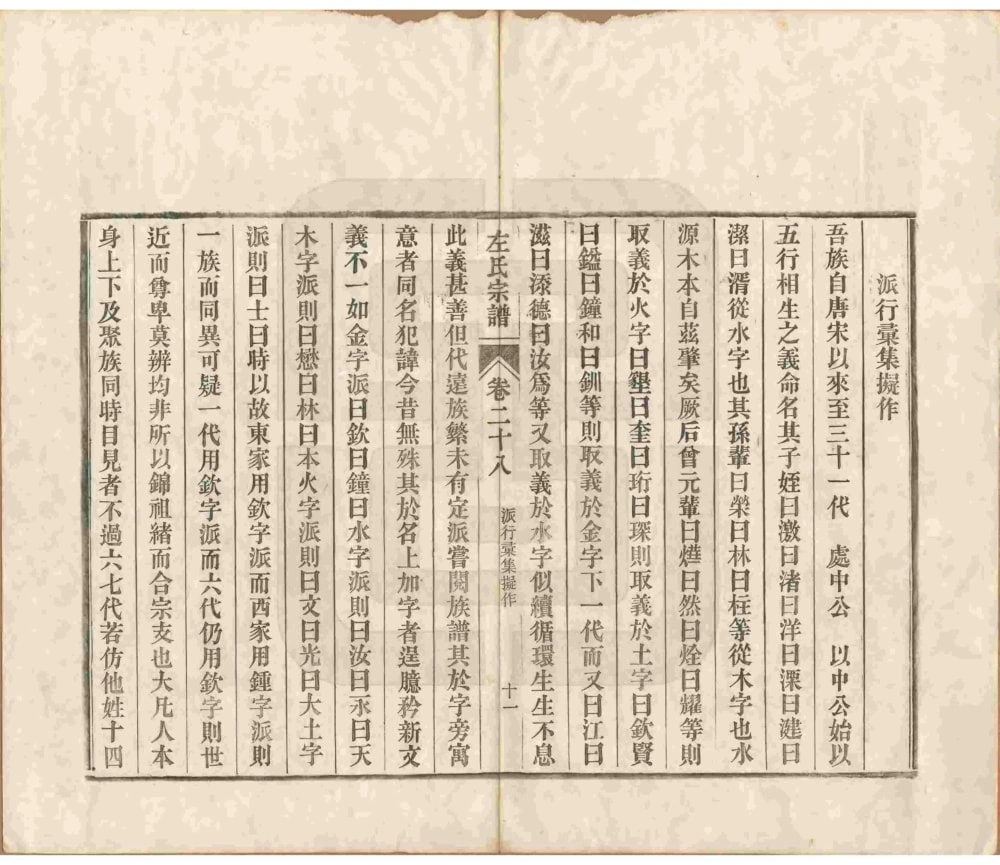 派行彙集擬作
吾族自唐宋以來至三十一代　處中公　以中公始以
五行相生之義命名其子姪曰激曰渚曰洋曰溧曰漣曰
潔曰湑從水字也其孫輩曰榮曰林曰柱等從木字也水
源木本自茲肇矣厥后曾元輩曰燁曰然曰烇曰耀等則
取義於火字曰壂曰奎曰珩曰琛則取義於土字曰欽賢
曰鎰曰鐘和曰釧等則取義於金字下一代而又曰江曰
滋曰添德曰汝爲等又取義於水字似續循環生生不息
左氏宗譜　卷二十八　派行彙集擬作　十一
此義甚善但代遠族繁未有定派嘗閱族譜其於字旁寓
意者同名犯諱今昔無殊其於名上加字者逞臆矜新文
義不一如金字派曰欽曰鐘曰水字派則曰汝曰永曰天
木字派則曰懋曰林曰本火字派則曰文曰光曰大土字
派則曰士曰時以故東家用欽字派而西家用鍾字派則
一族而同異可疑一代用欽字派而六代仍用欽字則世
近而尊卑莫辨均非所以錦祖緒而合宗支也大凡人本
身上下及聚族同時目見者不過六七代若仿他姓十四